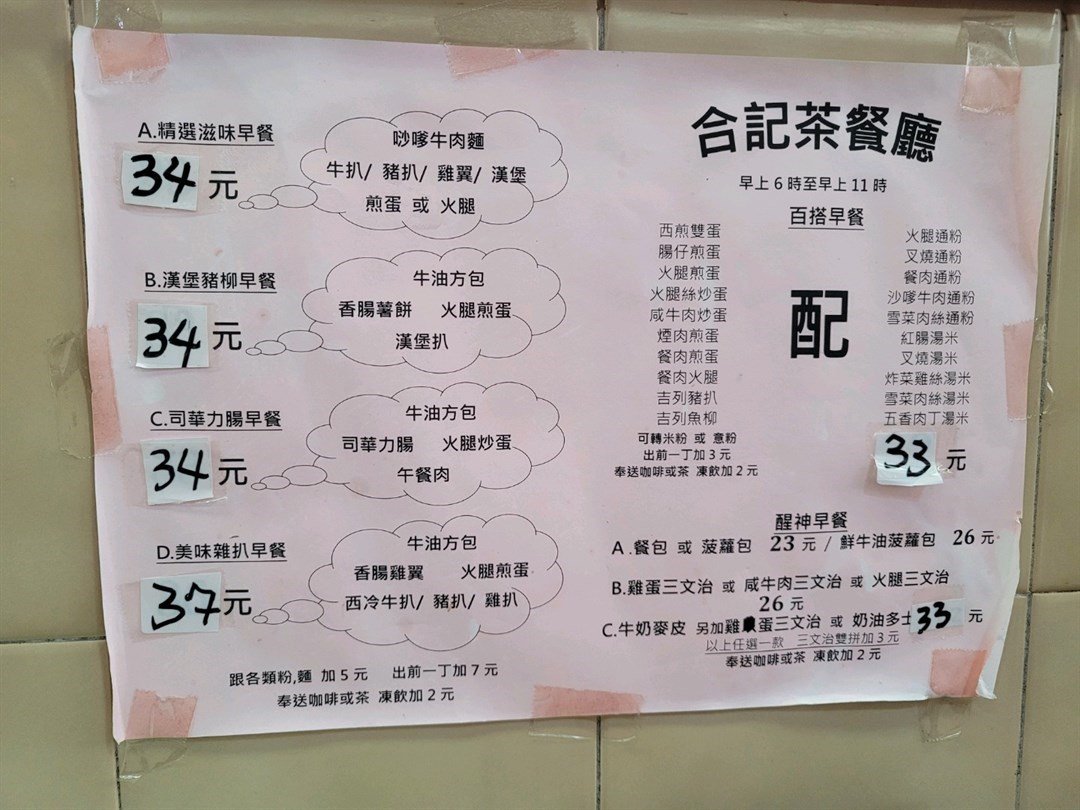 A.精選滋味早餐
34 元
吵嗲牛肉麵
牛扒/ 豬扒/ 雞翼/ 漢堡
煎蛋 或 火腿
B.漢堡豬柳早餐
34 元
牛油方包
香腸薯餅 火腿煎蛋
漢堡扒
C.司華力腸早餐
34 元
牛油方包
司華力腸 火腿炒蛋
午餐肉
D.美味雜扒早餐
37元
牛油方包
香腸雞翼 火腿煎蛋
西冷牛扒/ 豬扒/ 雞扒
跟各類粉,麵 加 5 元 出前一丁加 7 元
奉送咖啡或茶 凍飲加 2 元
合記茶餐廳
早上 6 時至早上 11 時
百搭早餐
西煎雙蛋
腸仔煎蛋
火腿煎蛋
火腿絲炒蛋
咸牛肉炒蛋
煙肉煎蛋
餐肉煎蛋
餐肉火腿
吉列豬扒
吉列魚柳
可轉米粉 或 意粉
出前一丁加 3 元
奉送咖啡或茶 凍飲加 2 元
配
火腿通粉
叉燒通粉
餐肉通粉
沙嗲牛肉通粉
雪菜肉絲通粉
紅腸湯米
叉燒湯米
炸菜雞絲湯米
雪菜肉絲湯米
五香肉丁湯米
33 元
醒神早餐
A.餐包 或 菠蘿包 23 元 / 鮮牛油菠蘿包 26 元
B.雞蛋三文治 或 咸牛肉三文治 或 火腿三文治
26 元
C.牛奶麥皮 另加雞蛋三文治 或 奶油多士 33 元
以上任選一款 三文治雙拼加 3 元
奉送咖啡或茶 凍飲加 2 元